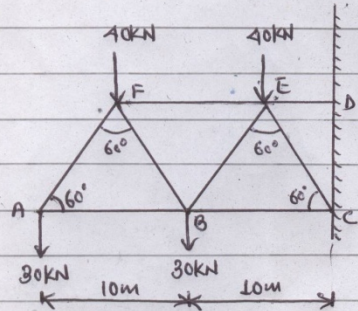 40KN 40KN
F E D
60° 60°
A 60° B 60° C
30KN 30KN
10m 10m